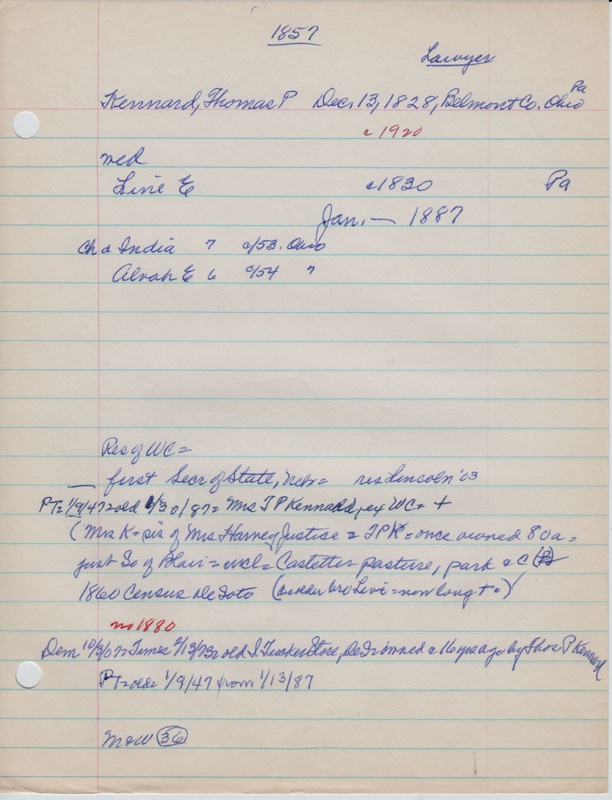 1857
Lawyer
Pa
Kennard, Thomas P Dec. 13, 1828, Belmont Co. Ohio
c 1920
wed
Livie E c1830 Pa
Jan. — 1887
Ch = India 7 c/53. Ohio
Alvah E 6 c/54 "
Res of WC =
— first Secr of State, Nebr = res Lincoln '03
PT = 1/9/47 = old 1/30/87 = Mrs T P Kennard, ex WC = +
(Mrs K = sis of Mrs Harvey Justice = TPK = once owned 80a =
just So of Blair = incl = Castetter pasture, park & C
1860 Census DeSoto (under bro Levi = now long t = )
no 1880
Dem 10/3/07 = Times 2/13/73 = old S. Tucker Store, DeS = owned c 16 yrs ago by Thos P Kennard
PT = old = 1/9/47 from 1/13/87
M & W 36